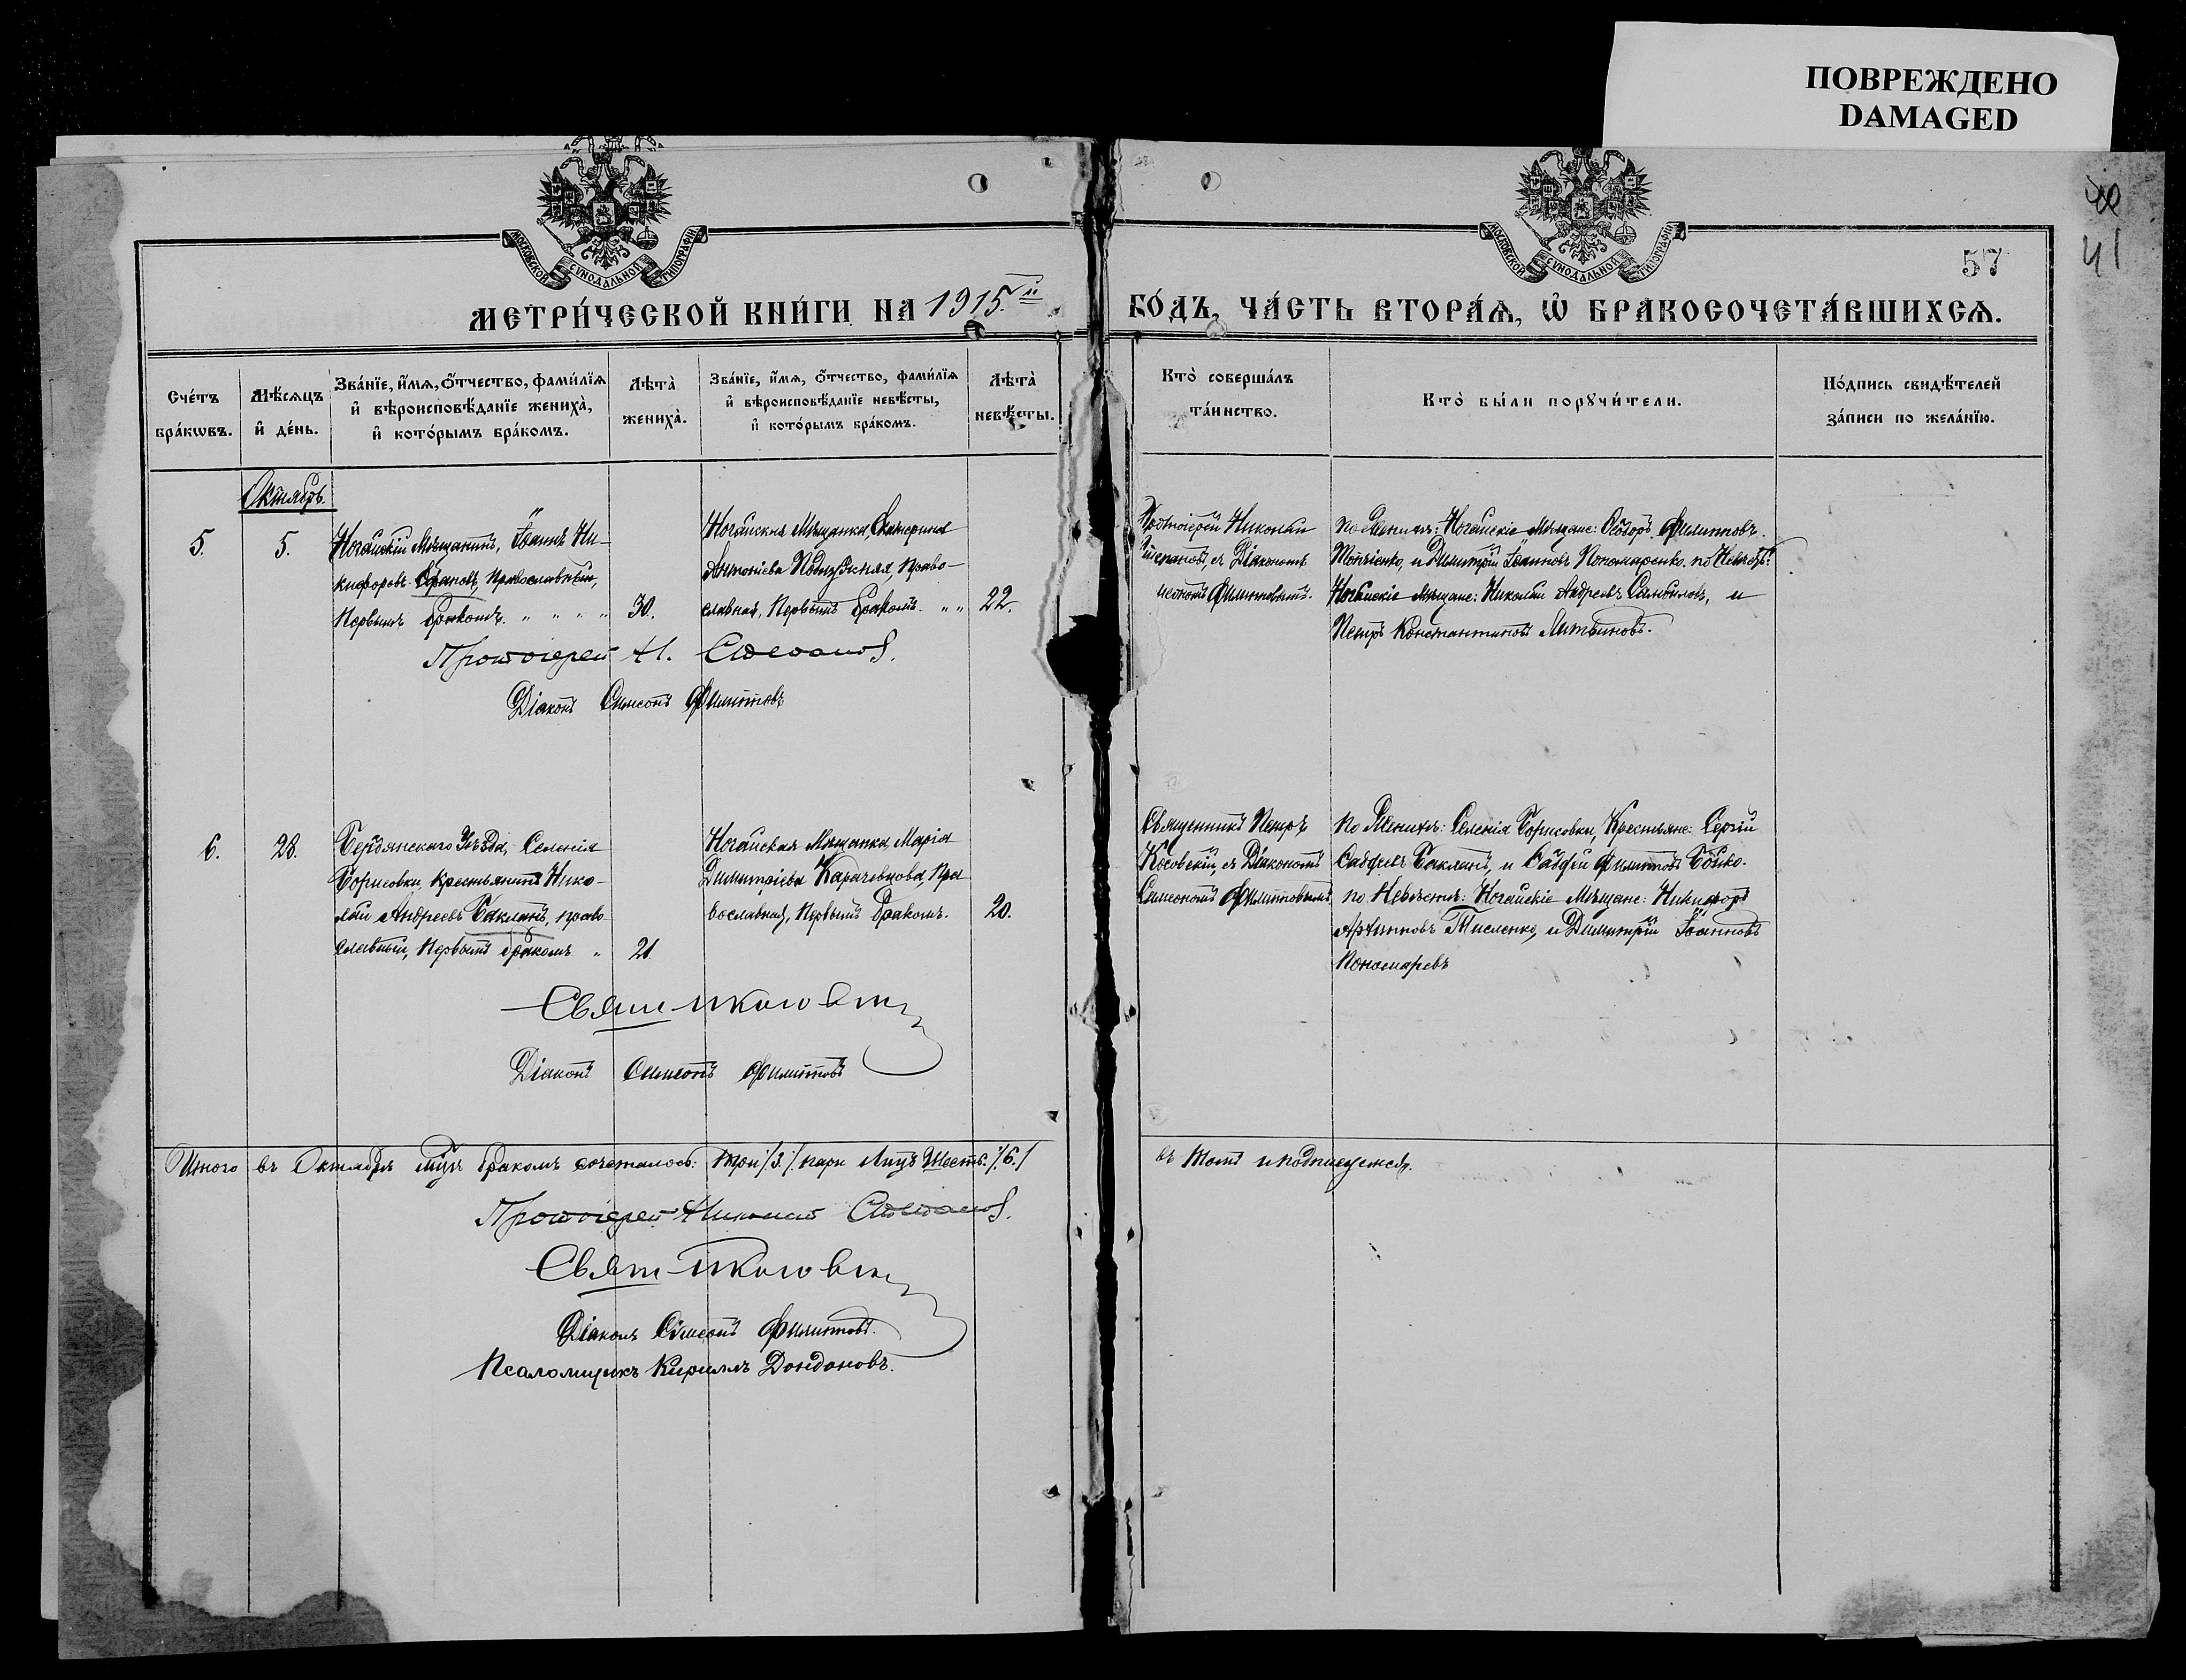 ПОВРЕЖДЕНО
DAMAGED
41
57
МОСКОВСКОЙ СѴНОДАЛЬНОЙ ТИПОГРАФІИ
МОСКОВСКОЙ СѴНОДАЛЬНОЙ ТИПОГРАФІИ
МЕТРИ́ЧЕСКОЙ КНИ́ГИ НА 1915й ГО́ДЪ, ЧА́СТЬ ВТОРА́Ѧ, Ѽ БРАКОСОЧЕТА́ВШИХСѦ.
Сче́тъ бра́кѡвъ.
Мѣ́сѧцъ и҆ де́нь.
Зва́нїе, и҆́мѧ, ѻ҆́тчество, фами́лїѧ
и҆ вѣроисповѣ́данїе жениха̀,
и҆ кото́рымъ бра́комъ.
Лѣта̀ жениха̀.
Зва́нїе, и҆́мѧ, ѻ҆́тчество, фами́лїѧ
и҆ вѣроисповѣ́данїе невѣ́сты,
и҆ кото́рымъ бра́комъ.
Лѣта̀ невѣ́сты.
Кто̀ соверша́лъ
та́инство.
Кто̀ бы́ли порꙋчи́тели.
По́дпись свидѣ́телей
за́писи по жела́нїю.
Октябрь.
5.
5.
Ногайскій Мѣщанинъ, Іоаннъ Ни-
кифоровъ православный,
Первымъ бракомъ. " " " "
30.
Ногайская Мѣщанка, Екатерина
Антоніева право-
славная, Первымъ бракомъ. " "
22.
Протоіерей Николай
Степановъ, съ Діакономъ
Филипповымъ.
По Женихѣ: Ногайскіе Мѣщане: Ѳеодоръ Филипповъ
и Димитрій Іоанновъ Пономаренко. по Невѣстѣ:
Ногайскіе Мѣщане: Николай Андреевъ и
Петръ Константиновъ Литвиновъ.
Протоіерей Н. Степановъ.
Діаконъ Симеонъ Филипповъ
6.
28.
Бердянскаго Уѣзда, Селенія
Борисовки, Крестьянинъ Нико-
лай Андреевъ Бакланъ, право
славный, Первымъ бракомъ "
21
Ногайская Мѣщанка, Марія
Димитріева Карачевцова, Пра
вославная, Первымъ бракомъ.
20.
Священникъ Петръ
Косовскій, съ Діакономъ
Симеономъ Филипповымъ
По Женихѣ: Селенія Борисовки, Крестьяне: Сергій
Савѳеевъ Бакланъ, и Филипповъ Бойко.
по Невѣстѣ: Ногайскіе Мѣщане: Никифоръ
и Димитрій Іоанновъ
Пономаревъ
Діаконъ Симеонъ Филипповъ
Итого въ Октябрѣ м-цѣ бракомъ сочеталось: три /3./ пары лицъ Шесть. /6./
въ томъ и подписуемся.
Протоіерей Николай Степановъ.
Діаконъ Симеонъ Филипповъ.
Псаломщикъ Кириллъ Дондоновъ.